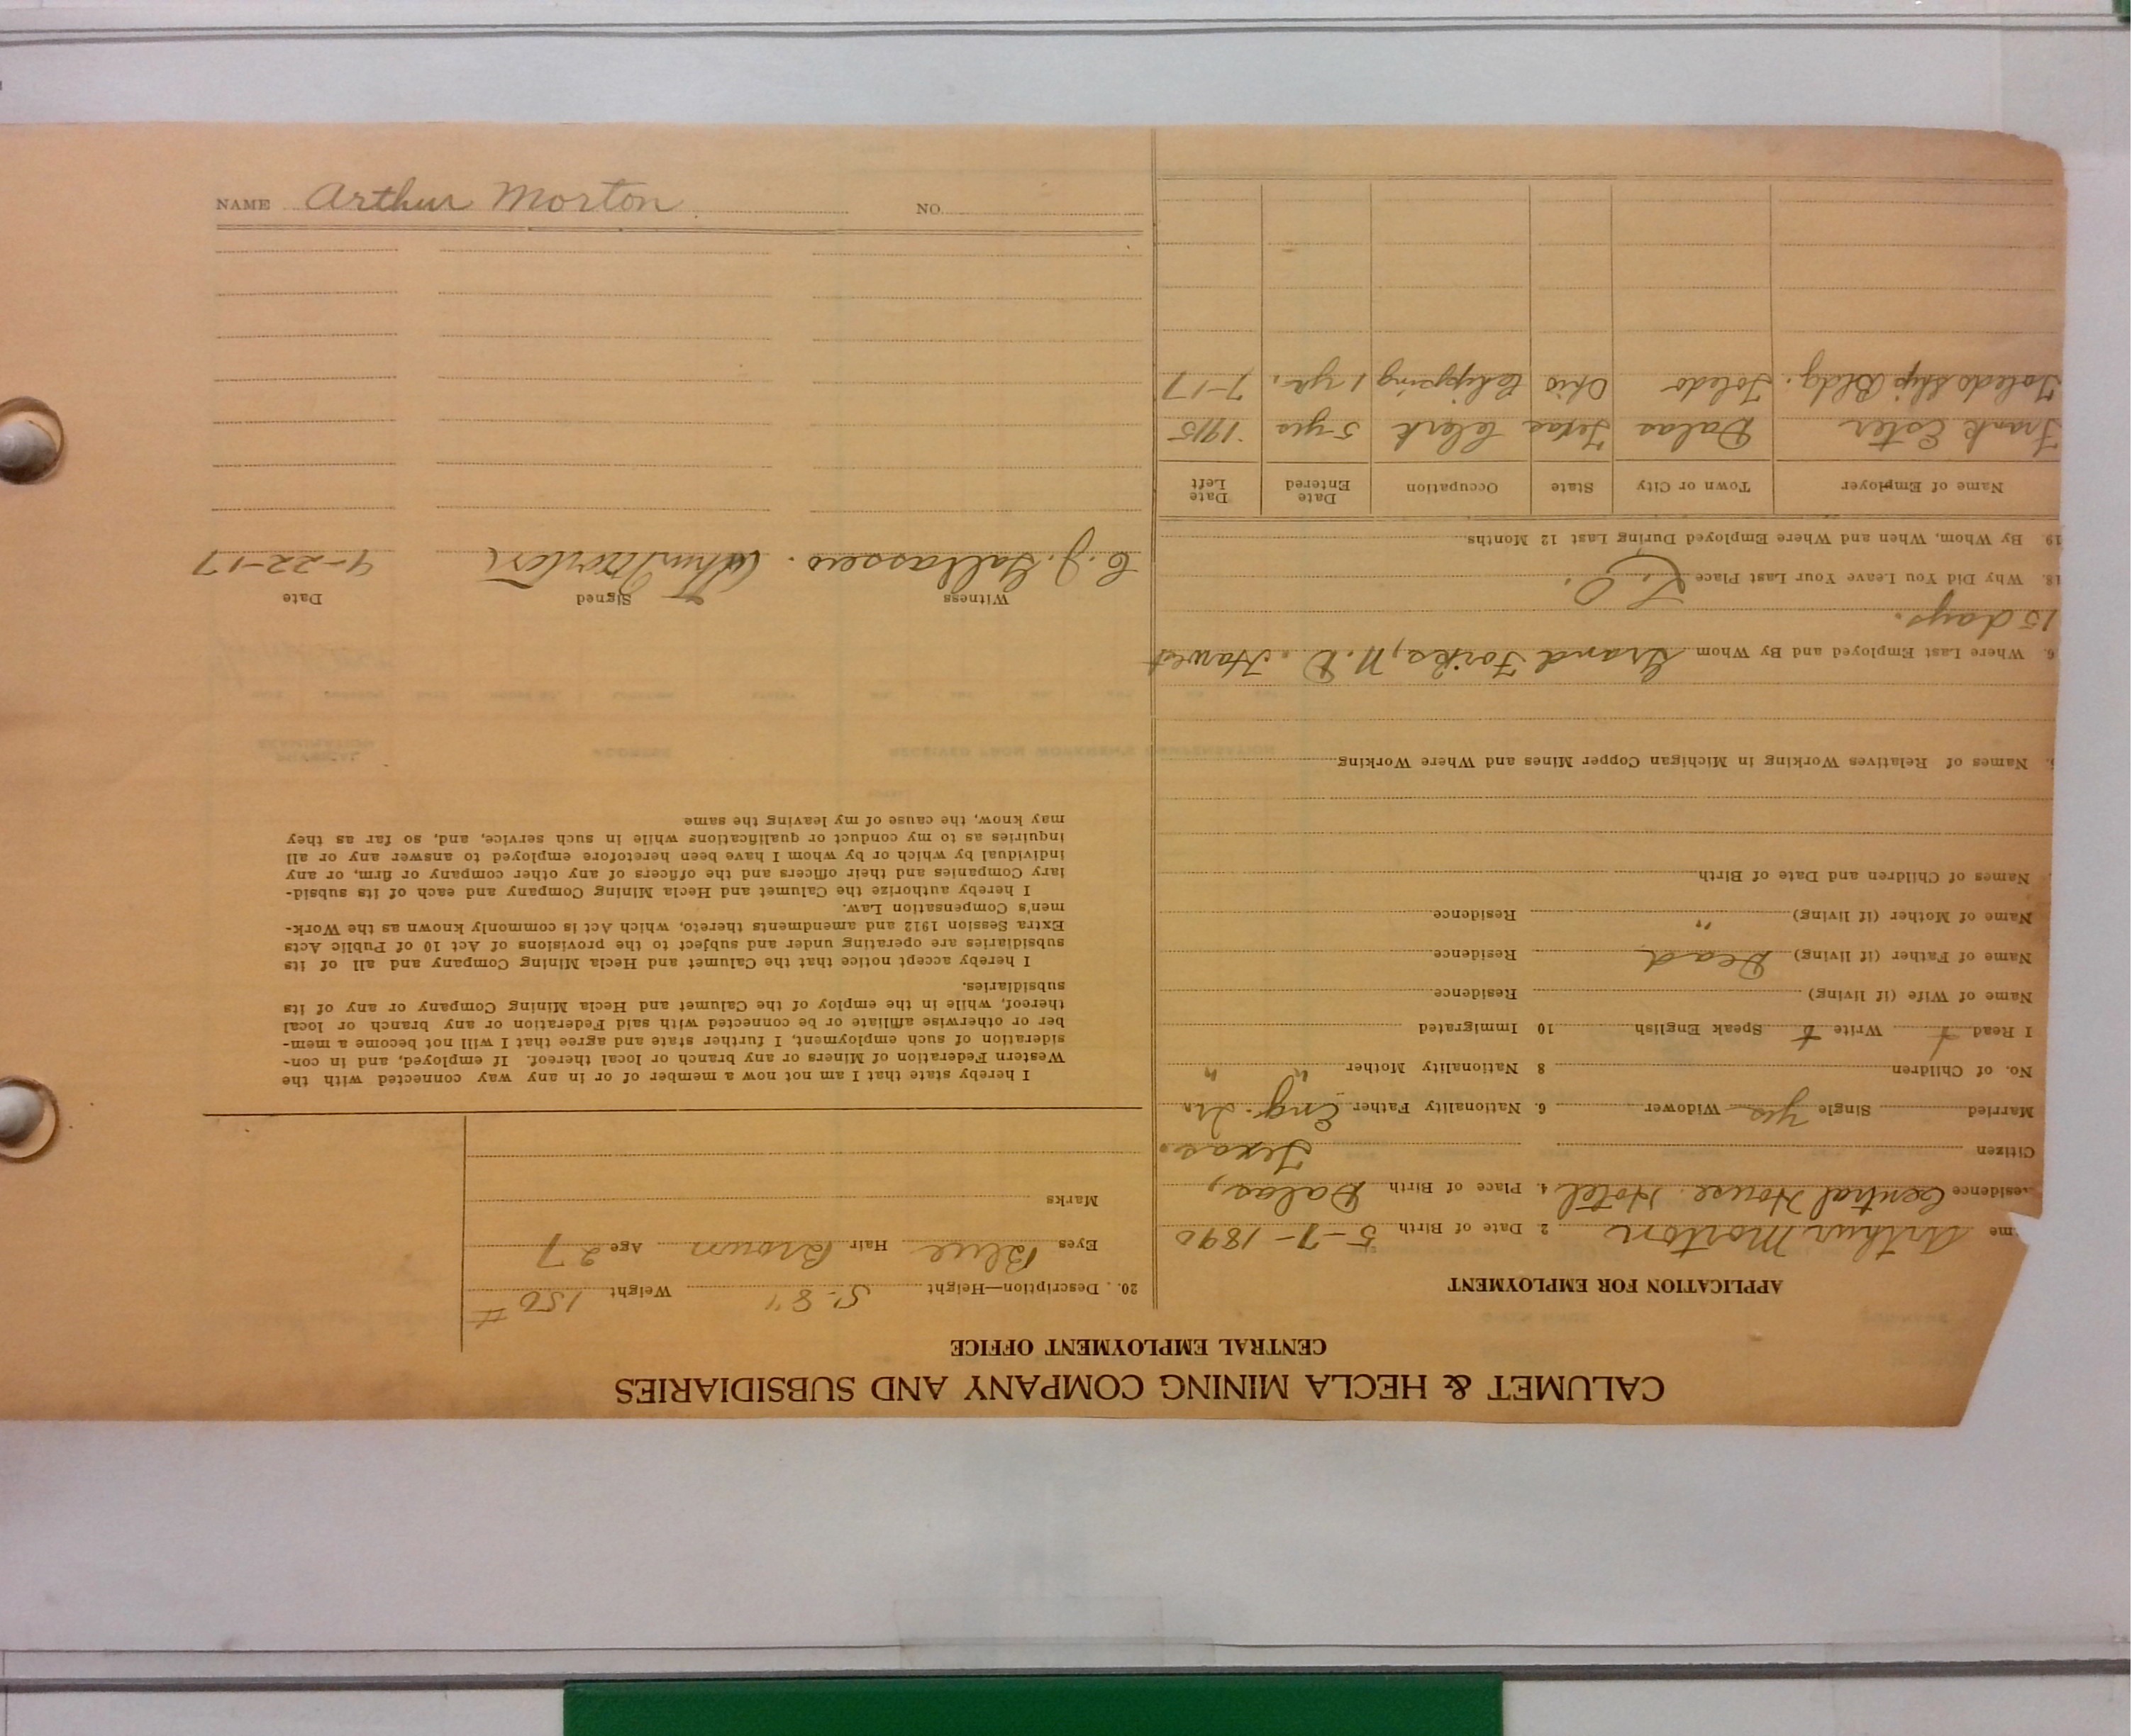 CALUMET & HECLA MINING COMPANY AND SUBSIDIARIES
CENTRAL EMPLOYMENT OFFICE
APPLICATION FOR EMPLOYMENT
me Arthur Morton 2. Date of Birth 5-7-1890
esidence Central House Hotel 4. Place of Birth Dalas,
Citizen Texas.
Married Single yes Widower 6. Nationality Father Eng.
No. of Children 8 Nationality Mother " "
1 Read Write Speak English 10 Immigrated
Name of Wife (if living) Residence
Name of Father (if living) Dead Residence
Name of Mother (if living) " Residence
Names of Children and Date of Birth
. Names of Relatives Working in Michigan Copper Mines and Where Working
6. Where Last Employed and By Whom Grand Forks, N.D. Harvest
15 days.
18. Why Did You Leave Your Last Place
19. By Whom, When and Where Employed During Last 12 Months
Name of Employer Town or City State Occupation Date Entered Date Left
Frank Ester Dalas Texas Clerk 5 yrs 1915
Toledo Ship Bldg. Toledo Ohio Chipping 1 yr. 7-17
20. Description—Height 5-8" Weight 150 #
Eyes Blue Hair Brown Age 27
Marks
I hereby state that I am not now a member of or in any way connected with the
Western Federation of Miners or any branch or local thereof. If employed, and in con-
sideration of such employment, I further state and agree that I will not become a mem-
ber or otherwise affiliate or be connected with said Federation or any branch or local
thereof, while in the employ of the Calumet and Hecla Mining Company or any of its
subsidiaries.
I hereby accept notice that the Calumet and Hecla Mining Company and all of its
subsidiaries are operating under and subject to the provisions of Act 10 of Public Acts
Extra Session 1912 and amendments thereto, which Act is commonly known as the Work-
men's Compensation Law.
I hereby authorize the Calumet and Hecla Mining Company and each of its subsid-
iary Companies and their officers and the officers of any other company or firm, or any
individual by which or by whom I have been heretofore employed to answer any or all
inquiries as to my conduct or qualifications while in such service, and, so far as they
may know, the cause of my leaving the same
Witness Signed Date
C. J. Arthur Morton 9-22-17
NAME Arthur Morton NO.